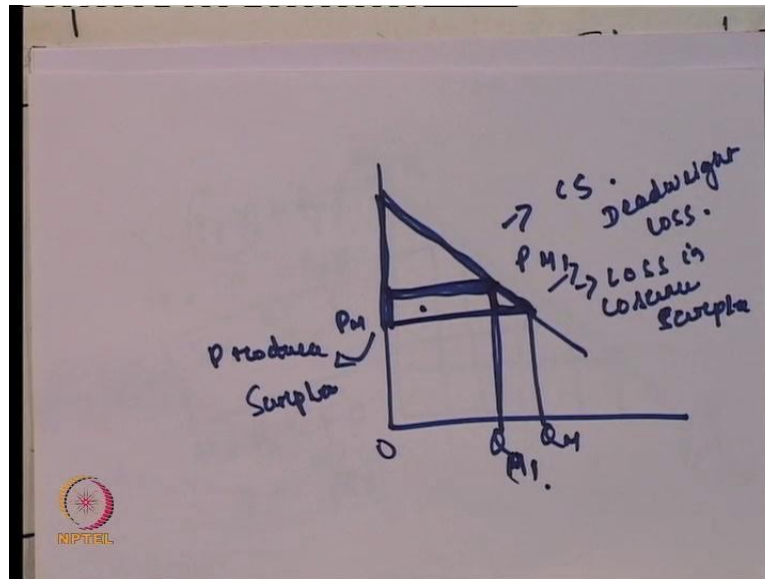 CS.
Deadweight
Loss.
PM1
Loss in
Surplu
PM
Produce
Surplu
O
QM1.
QM
NPTEL